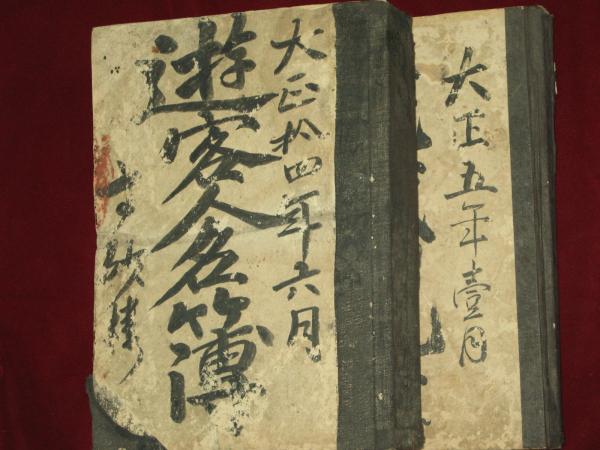 大正五年壹月
大正拾四年六月
遊客人名簿